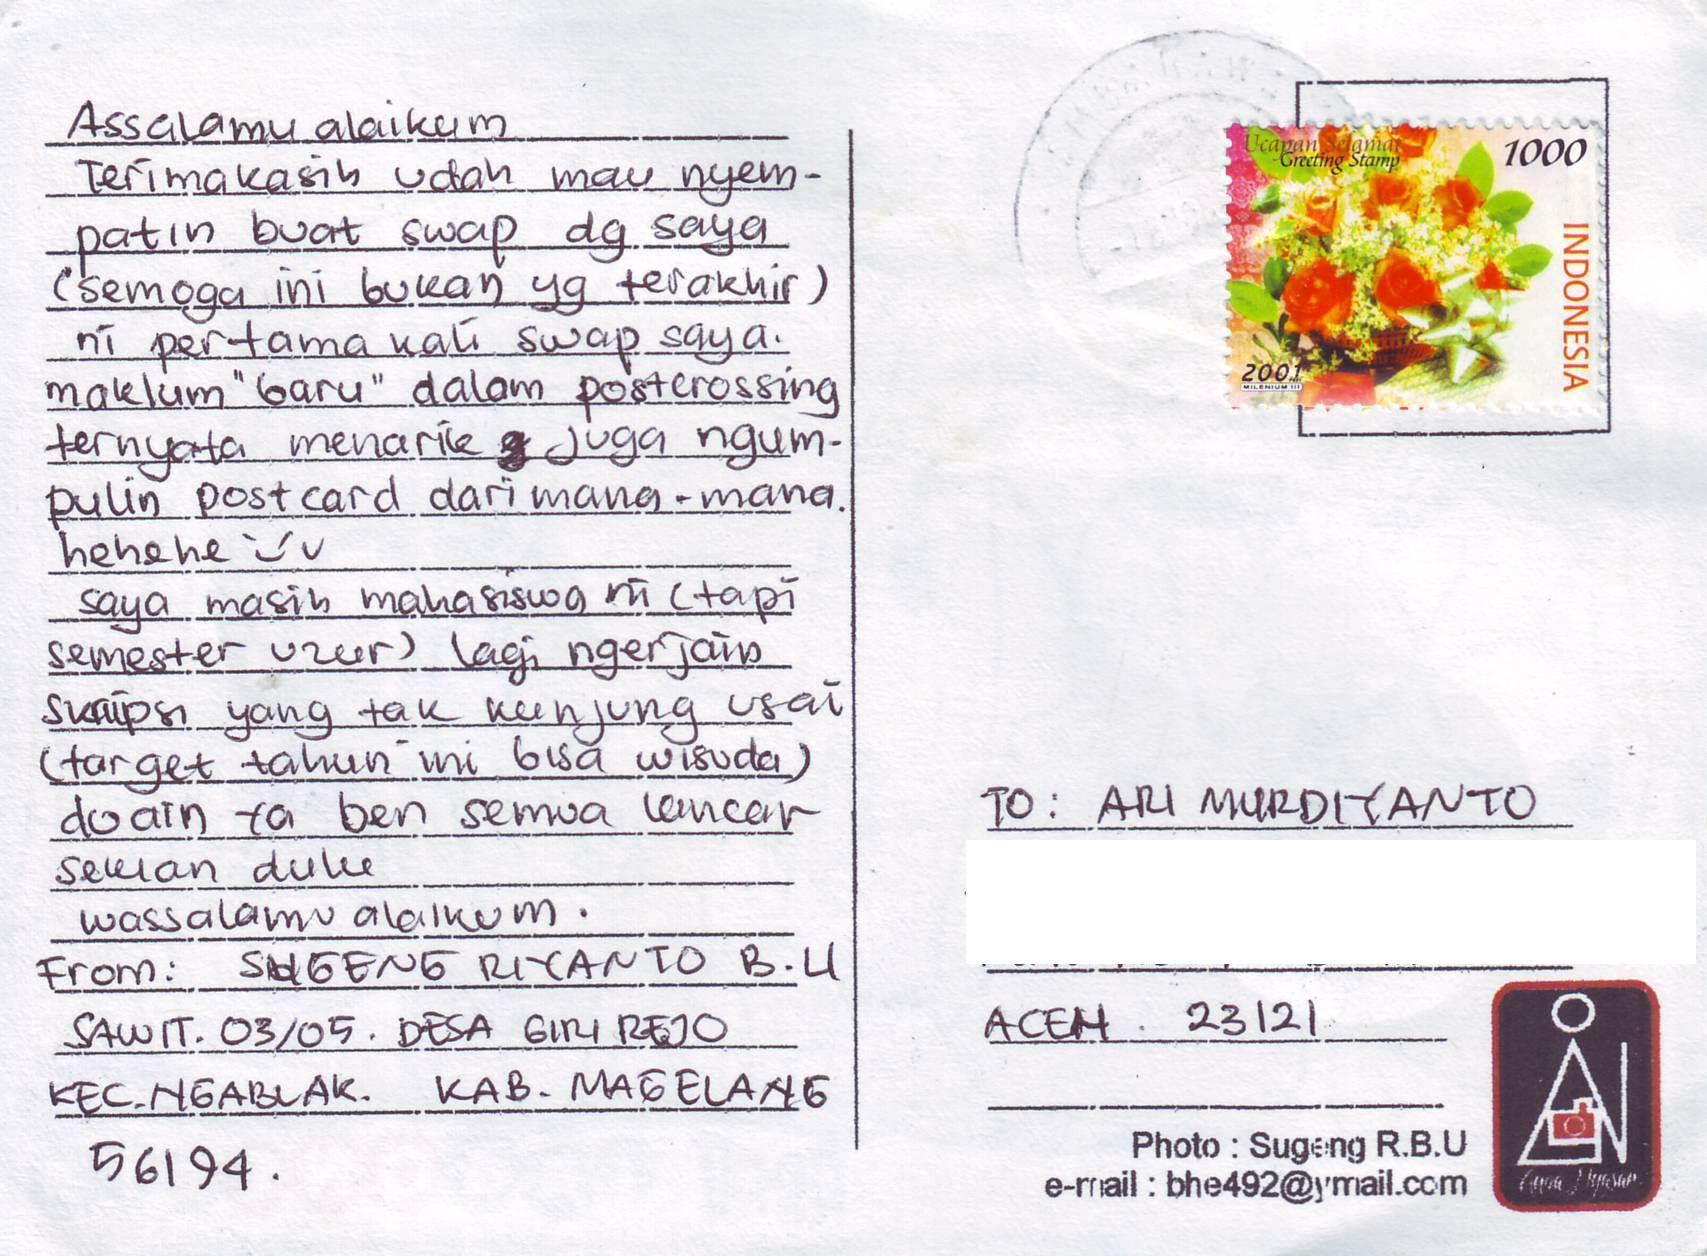 Assalamu alaikum
Terimakasih udah mau nyem-
patin buat swap dg saya
(semoga ini bukan yg terakhir)
ni pertama kali swap saya.
maklum "baru" dalam postcrossing
ternyata menarik juga ngum-
pulin postcard dari mana-mana.
hehehe
saya masih mahasiswa ni (tapi
semester uzur) lagi ngerjain
skripsi yang tak kunjung usai
(target tahun ini bisa wisuda)
doain ya ben semua lancar
sekian dulu
wassalamu alaikum.
From: SUGENG RIYANTO B.U
SAWIT. 03/05. DESA GIRI REJO
KEC. NGABLAK. KAB. MAGELANG
56194.
Ucapan Selamat
Greeting Stamp
1000
INDONESIA
2001
MILENIUM III
TO: ARI MURDIYANTO
ACEH. 23121
Photo : Sugeng R.B.U
e-mail : bhe492@ymail.com